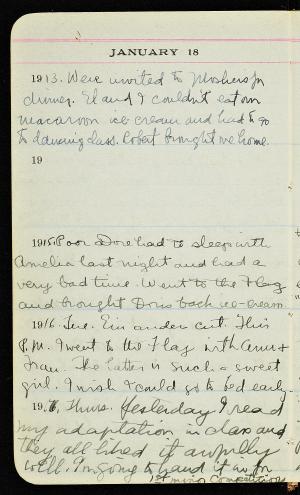 JANUARY 18
1913. Were invited to Moshers for
dinner. El and I couldn't eat our
macaroon ice-cream and had to go
to dancing class. Robert brought me home.
19
1915. Poor Dore had to sleep with
Amelia last night and had a
very bad time. Went to the Flag
and brought Doris back ice-cream.
1916. Tue. Ein ander cut. This
P.M. I went to the Flag with Anna &
Fran. The latter is such a sweet
girl. I wish I could go to bed early.
19. Thurs. Yesterday I read
my adaptation in class and
they all liked it awfully
well. I'm going to hand it in for
Competition